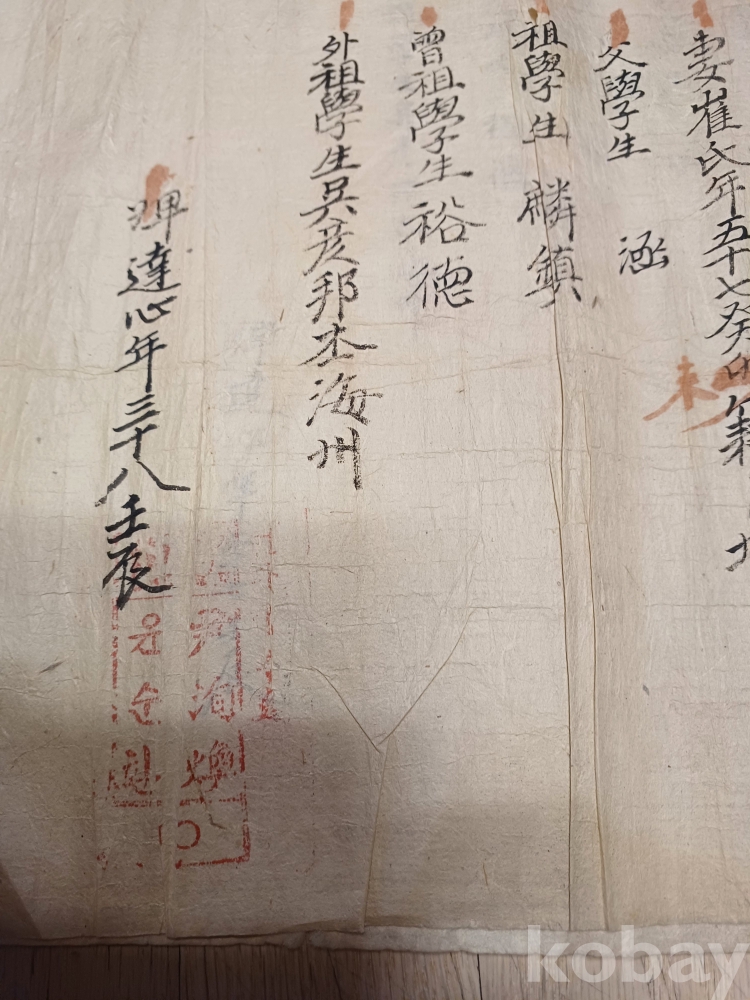 妻崔氏年五十七癸卯籍
父學生 涵
祖學生 麟鎮
曾祖學生裕德
外祖學生吳彦邦本海州
達心年三十八壬辰
윤 순
kobay